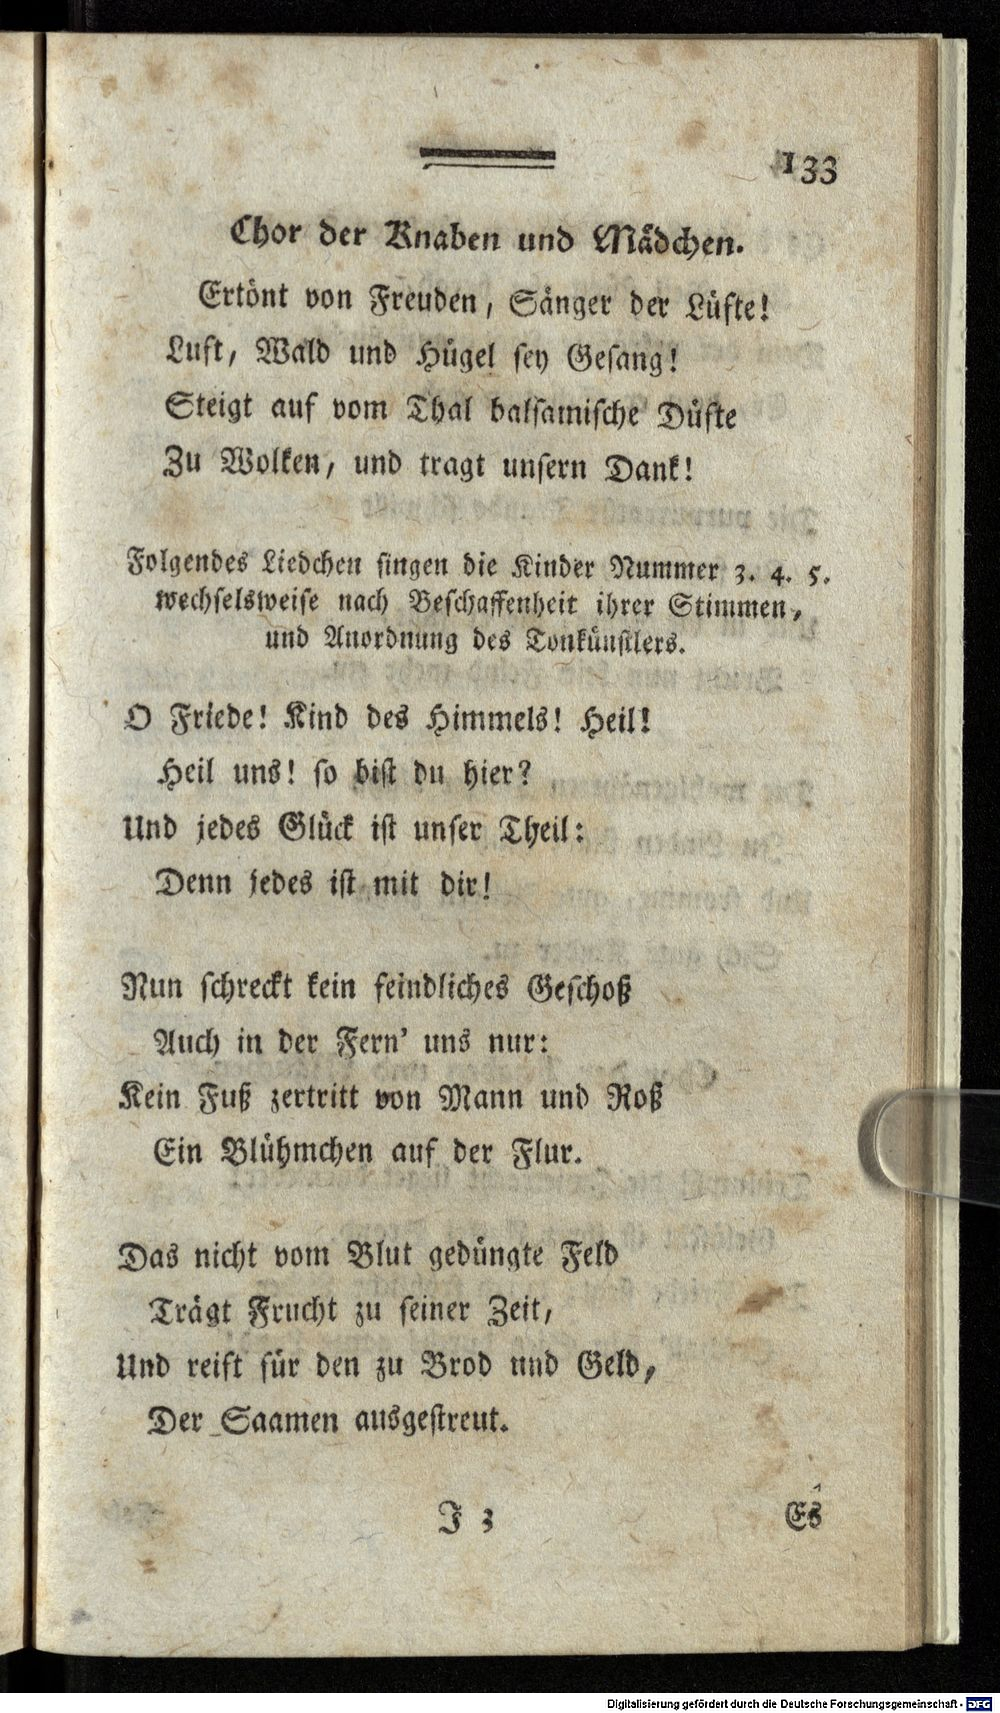 133
Chor der Knaben und Mädchen.
Ertönt von Freuden, Sänger der Lüfte!
Luft, Wald und Hügel sey Gesang!
Steigt auf vom Thal balsamische Düfte
Zu Wolken, und tragt unsern Dank!
Folgendes Liedchen singen die Kinder Nummer 3. 4. 5.
wechselsweise nach Beschaffenheit ihrer Stimmen,
und Anordnung des Tonkünstlers.
O Friede! Kind des Himmels! Heil!
Heil uns! so bist du hier?
Und jedes Glück ist unser Theil:
Denn jedes ist mit dir!
Nun schreckt kein feindliches Geschoß
Auch in der Fern' uns nur:
Kein Fuß zertritt von Mann und Roß
Ein Blühmchen auf der Flur.
Das nicht vom Blut gedüngte Feld
Trägt Frucht zu seiner Zeit,
Und reift für den zu Brod und Geld,
Der Saamen ausgestreut.
J 3 Es
Digitalisierung gefördert durch die Deutsche Forschungsgemeinschaft - DFG